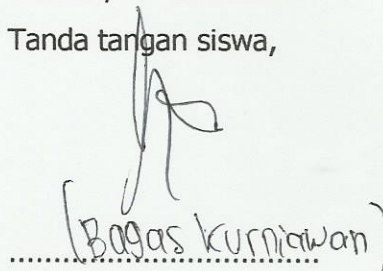 Tanda tangan siswa,
(Bagas Kurniawan)